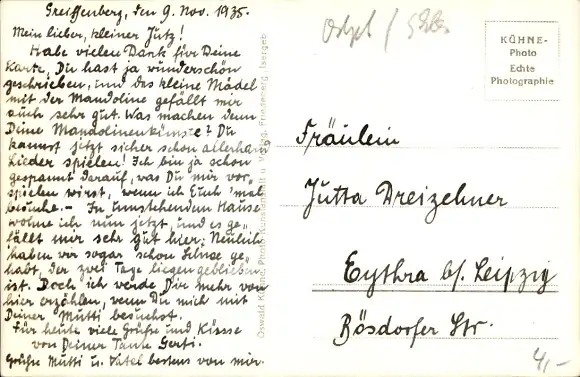 Greiffenberg, den 9. Nov. 1935.
Mein lieber, kleiner Jutz!
Habe vielen Dank für Deine
Karte, Du hast ja wunderschön
geschrieben, und das kleine Mädel
mit der Mandoline gefällt mir
auch sehr gut. Was machen denn
Deine Mandolinenkünste? Du
kannst jetzt sicher schon allerhand
Lieder spielen! Ich bin ja schon
gespannt darauf, was Du mir vor-
spielen wirst, wenn ich Euch 'mal
besuche. – In umstehendem Hause
wohne ich nun jetzt, und es ge-
fällt mir sehr gut hier. Neulich
haben wir sogar schon Schnee ge-
habt, der zwei Tage liegen geblieben
ist. Doch ich werde Dir mehr von
hier erzählen, wenn Du mich mit
Deiner Mutti besuchst.
Für heute viele Grüße und Küsse
von Deiner Tante Gerti.
Grüße Mutti u. Vatel bestens von mir.
Oswald Kühne, Photo-Kunstanstalt u. Verlag, Friedeberg, Isergeb.
KÜHNE-
Photo
Echte
Photographie
Fräulein
Jutta Dreizehner
Eythra b/. Leipzig
Bösdorfer Str.
4,-